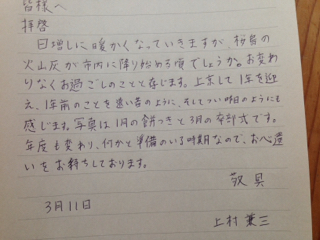 皆様へ
拝啓
日増しに暖かくなっていきますが、桜島の
火山灰が市内に降り始める頃でしょうか。お変わ
りなくお過ごしのことと存じます。上京して1年を迎
え、1年前のことを遠い昔のように、そしてつい昨日のようにも
感じます。写真は1月の餅つきと3月の卒部式です。
年度も変わり、何かと準備のいる時期なので、お心遣
いをお持ちしております。
敬具
3月11日
上村 兼三